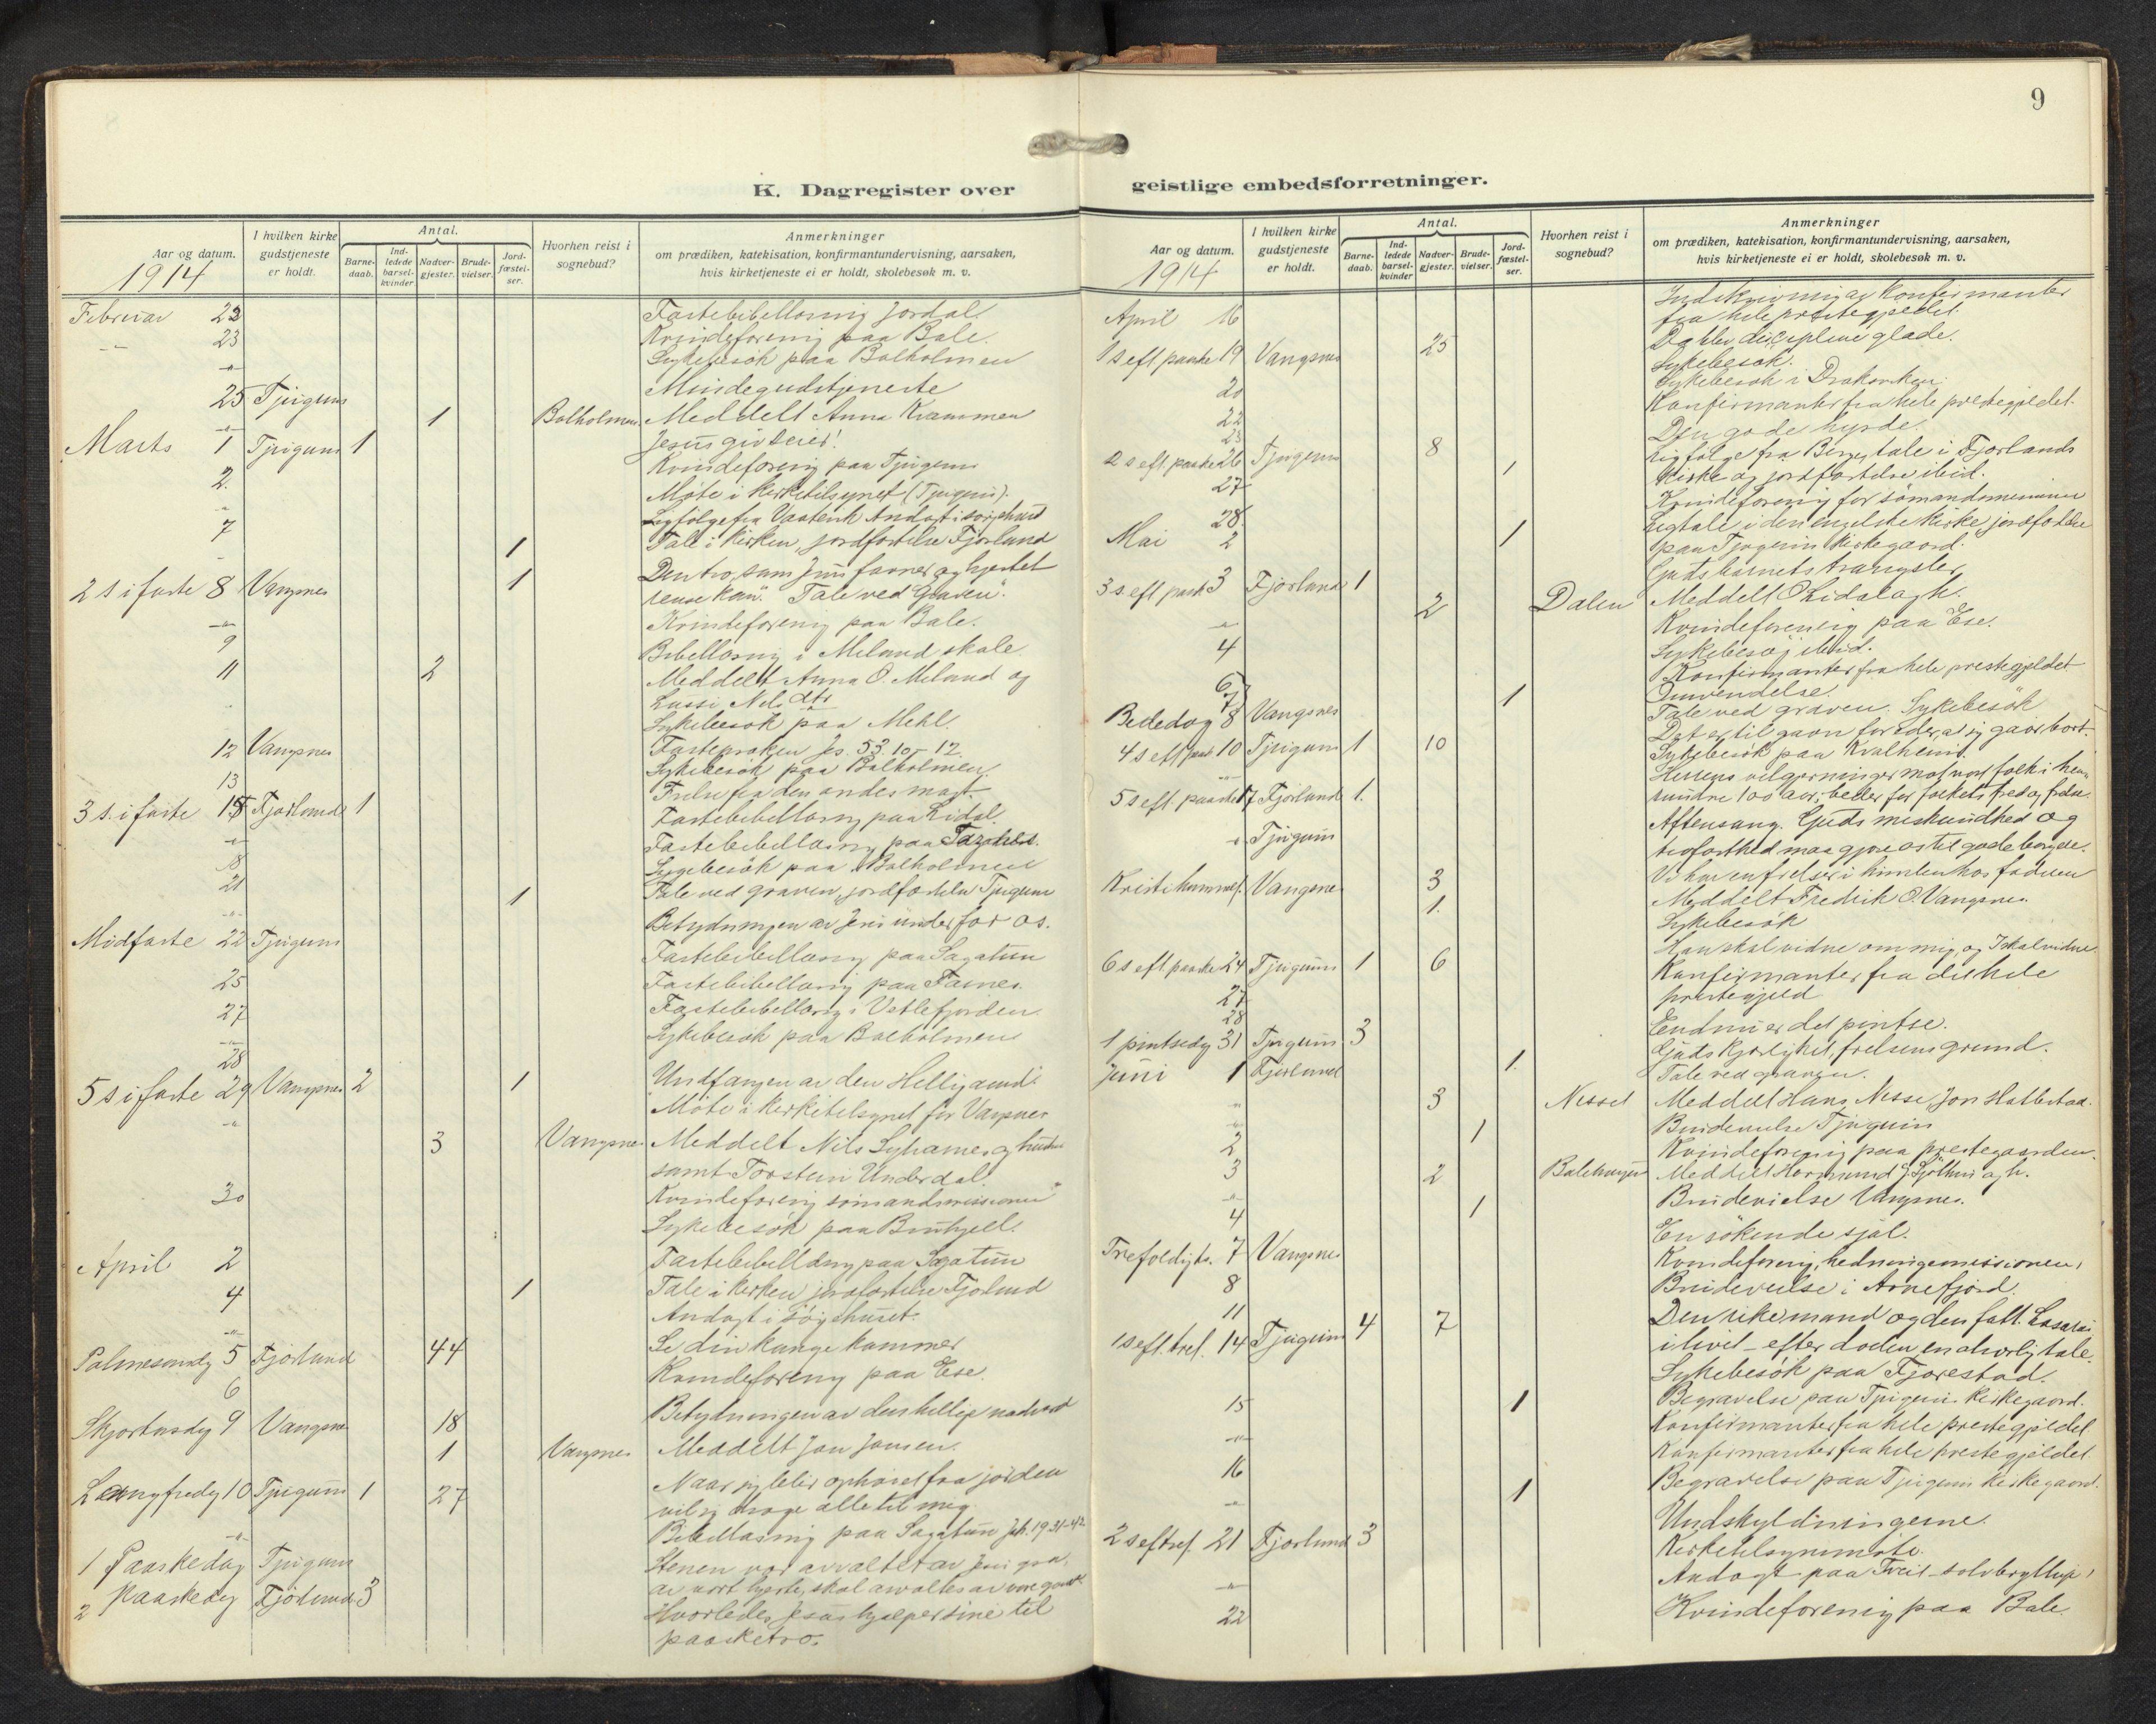 9
K. Dagregister over
geistlige embedsforretninger.
Aar og datum.
1914
I hvilken kirke gudstjeneste er holdt.
Antal.
Barne-daab.
Ind-ledede barsel-kvinder.
Nadver-gjester.
Brude-vielser.
Jord-fæstel-ser.
Hvorhen reist i sognebud?
Anmerkninger
om prædiken, katekisation, konfirmantundervisning, aarsaken,
hvis kirketjeneste ei er holdt, skolebesøk m. v.
Februar 22 Fastebibellæsnig Jordal
-"- 23 Kvindeforenig paa Bale.
-"- Sykebesøk paa Balholmen
25 Tjugum Missegudstjeneste
-"- 1 Balholmen Meddelt Anna Kvammen
Marts 1 Tjugum 1 Jesus giv seier!
2. Kvindeforenig paa Tjugum
-"- Møte i kirketilsynet (Tjugum).
7 Ligfølge fra Andagt i sørgehuset
- 1 Tale i kirken, jordfæstelse Fjærland
2 s i faste 8 Vangsnes 1 Den tro, som favner og hjertet
rense kan. Tale ved graven.
-"- Kvindeforenig paa Bale.
9 Bibellæsnig i Meland skole
11 2 Meddelt Anna O. Meland og
Lussi Nilsdtr
Sykebesøk paa Mehl.
12 Vangsnes Fastepræken Js. 53. 10-12
13 Sykebesøk paa Balholmen.
3 s. i faste 15 Fjærland 1 Frelse fra den ondes magt.
-"- Fastebibellæsnig paa Lidal.
18 Fastebibellæsnig paa
21 Sykebesøk paa Balholmen
-"- 1 Tale ved graven, jordfæstelse Tjugum
Midfaste 22 Tjugum Betydningen av Jesu under for os.
Fastebibellæsnig paa Sagatun
25 Fastebibellæsnig paa Farnes.
27 Fastebibellæsnig i Vetlefjorden
-"- 28 Sykebesøk paa Balholmen
5 s i faste 29 Vangsnes 2 1 Undfangen av den Helligaand.
-"- Møte i kirketilsynet for Vangsnes
3 Vangsnes Meddelt Nils og hustru
samt Torstein Underdal.
30 Kvindeforenig sømandsmissionen
Sykebesøk paa
April 2 Fastebibellæsnig paa Sagatun
4 1 Tale i kirken jordfæstelse Fjærland
-"- Andagt i sørgehuset.
Palmesøndag 5 Fjærland 44 Se din konge kommer
6 Kvindeforenig paa Ese.
Skjærtorsdag 9 Vangsnes 18 Betydningen av den hellige nadverd
1 Vangsnes Meddelt Jon Jonsen.
Langfredag 10 Tjugum 1 27 Naar jeg blir ophøiet fra jorden
vil jeg drage alle til mig.
-"- Bibellæsnig paa Sagatun Joh. 19 31-42
1 Paaskedag Tjugum Stenen var avvæltet av Jesu grav,
av vort hjerte, skal avvæltes av vore grave.
2 Paaskedag Fjærland 3 Hvorledes Jesus hjælper sine til
paasketro.
Aar og datum.
1914
I hvilken kirke gudstjeneste er holdt.
Antal.
Barne-daab.
Ind-ledede barsel-kvinder
Nadver-gjester.
Brude-vielser.
Jord-fæstel-ser.
Hvorhen reist i sognebud?
Anmerkninger
om prædiken, katekisation, konfirmantundervisning, aarsaken,
hvis kirketjeneste ei er holdt, skolebesøk m. v.
April 16 Indskrivnig av konfirmanter
fra hele prestegjeldet.
1 s eft paaske 19 Vangsnes 25 Da blev disciplene glade.
Sykebesøk.
20 Sykebesøk i
22 Konfirmanter fra hele prestegjeldet.
23
2 s eft. paaske 26 Tjugum 8 Den gode hyrde.
27 1 Ligfølge fra Berge, tale i Fjærlands
kirke og jordfæstelse ibid.
28 Kvindeforenig for sømandsmissionen
Mai 2 1 Ligtale i den engelske kirke, jordfæstelse
paa Tjugum kirkegaard.
3 s. eft paask 3 Fjærland 1 Guds barnets trængsler
-"- 2 Dalen Meddelt O Lidal og h.
4 Kvindeforenig paa Ese.
Sykebesøg ibid.
6 Konfirmanter fra hele prestegjeldet
7
Bededag 8 Vangsnes 1 Omvendelse.
Tale ved graven. Sykebesøk
4 s eft paask 10 Tjugum 1 10 Det er til gavn for eder, at jeg gaar bort.
Sykebesøk paa Kvalheim.
5 s eft. paaske 17 Fjærland 1. Herrens velgjerninger mot vort folk i hen-
rundne 100 aar; beder for folkets fred og frelse.
-"- Tjugum Aftensang. Guds miskundhed og
trofasthed maa gjøre os til gode borgere.
Kristi himmelf. Vangsnes 3 Vi har en frelser i himlen hos faderen
1. Meddelt Fredrik O. Vangsnes.
Sykebesøk
6 s eft paaske 24 Tjugum 1 6 Han skal vidne om mig, og I skal vidne.
27 Konfirmanter fra det hele
28 prestegjeld
1 pintsedag 31 Tjugum 3 Endnu er det pintse.
Juni 1 Fjærland 1. Guds kjærlighet, frelsens grund.
Tale ved graven.
-"- 3 Nesset Meddelt Hans Nesse, Jon
-"- 1 Brudevielse Tjugum
2 Kvindeforenig paa prestegaarden.
3 2 Balehaugen Meddelt og h.
-"- 1 Brudevielse Vangsnes.
4
Trefoldighs. 7 Vangsnes En søkende sjæl.
8 Kvindeforenig, hedningemissionen,
11 Brudevielse i Arnefjord.
1 s eft. tref. 14 Tjugum 4 7 Den rike mand og den fatt. Lasarus
i livet - efter døden en alvorlig tale.
Sykebesøk paa Fjærestad.
15 1 Begravelse paa Tjugum kirkegaard.
-"- Konfirmanter fra hele prestegjeldet
16 Konfirmanter fra hele prestegjeldet
-"- 1 Begravelse paa Tjugum kirkegaard.
2 s eft tref. 21 Fjærland 3 Undskyldningerne.
Kirketilsynsmøte.
-"- Andagt paa - sølvbryllup,
22 Kvindeforenig paa Bale.